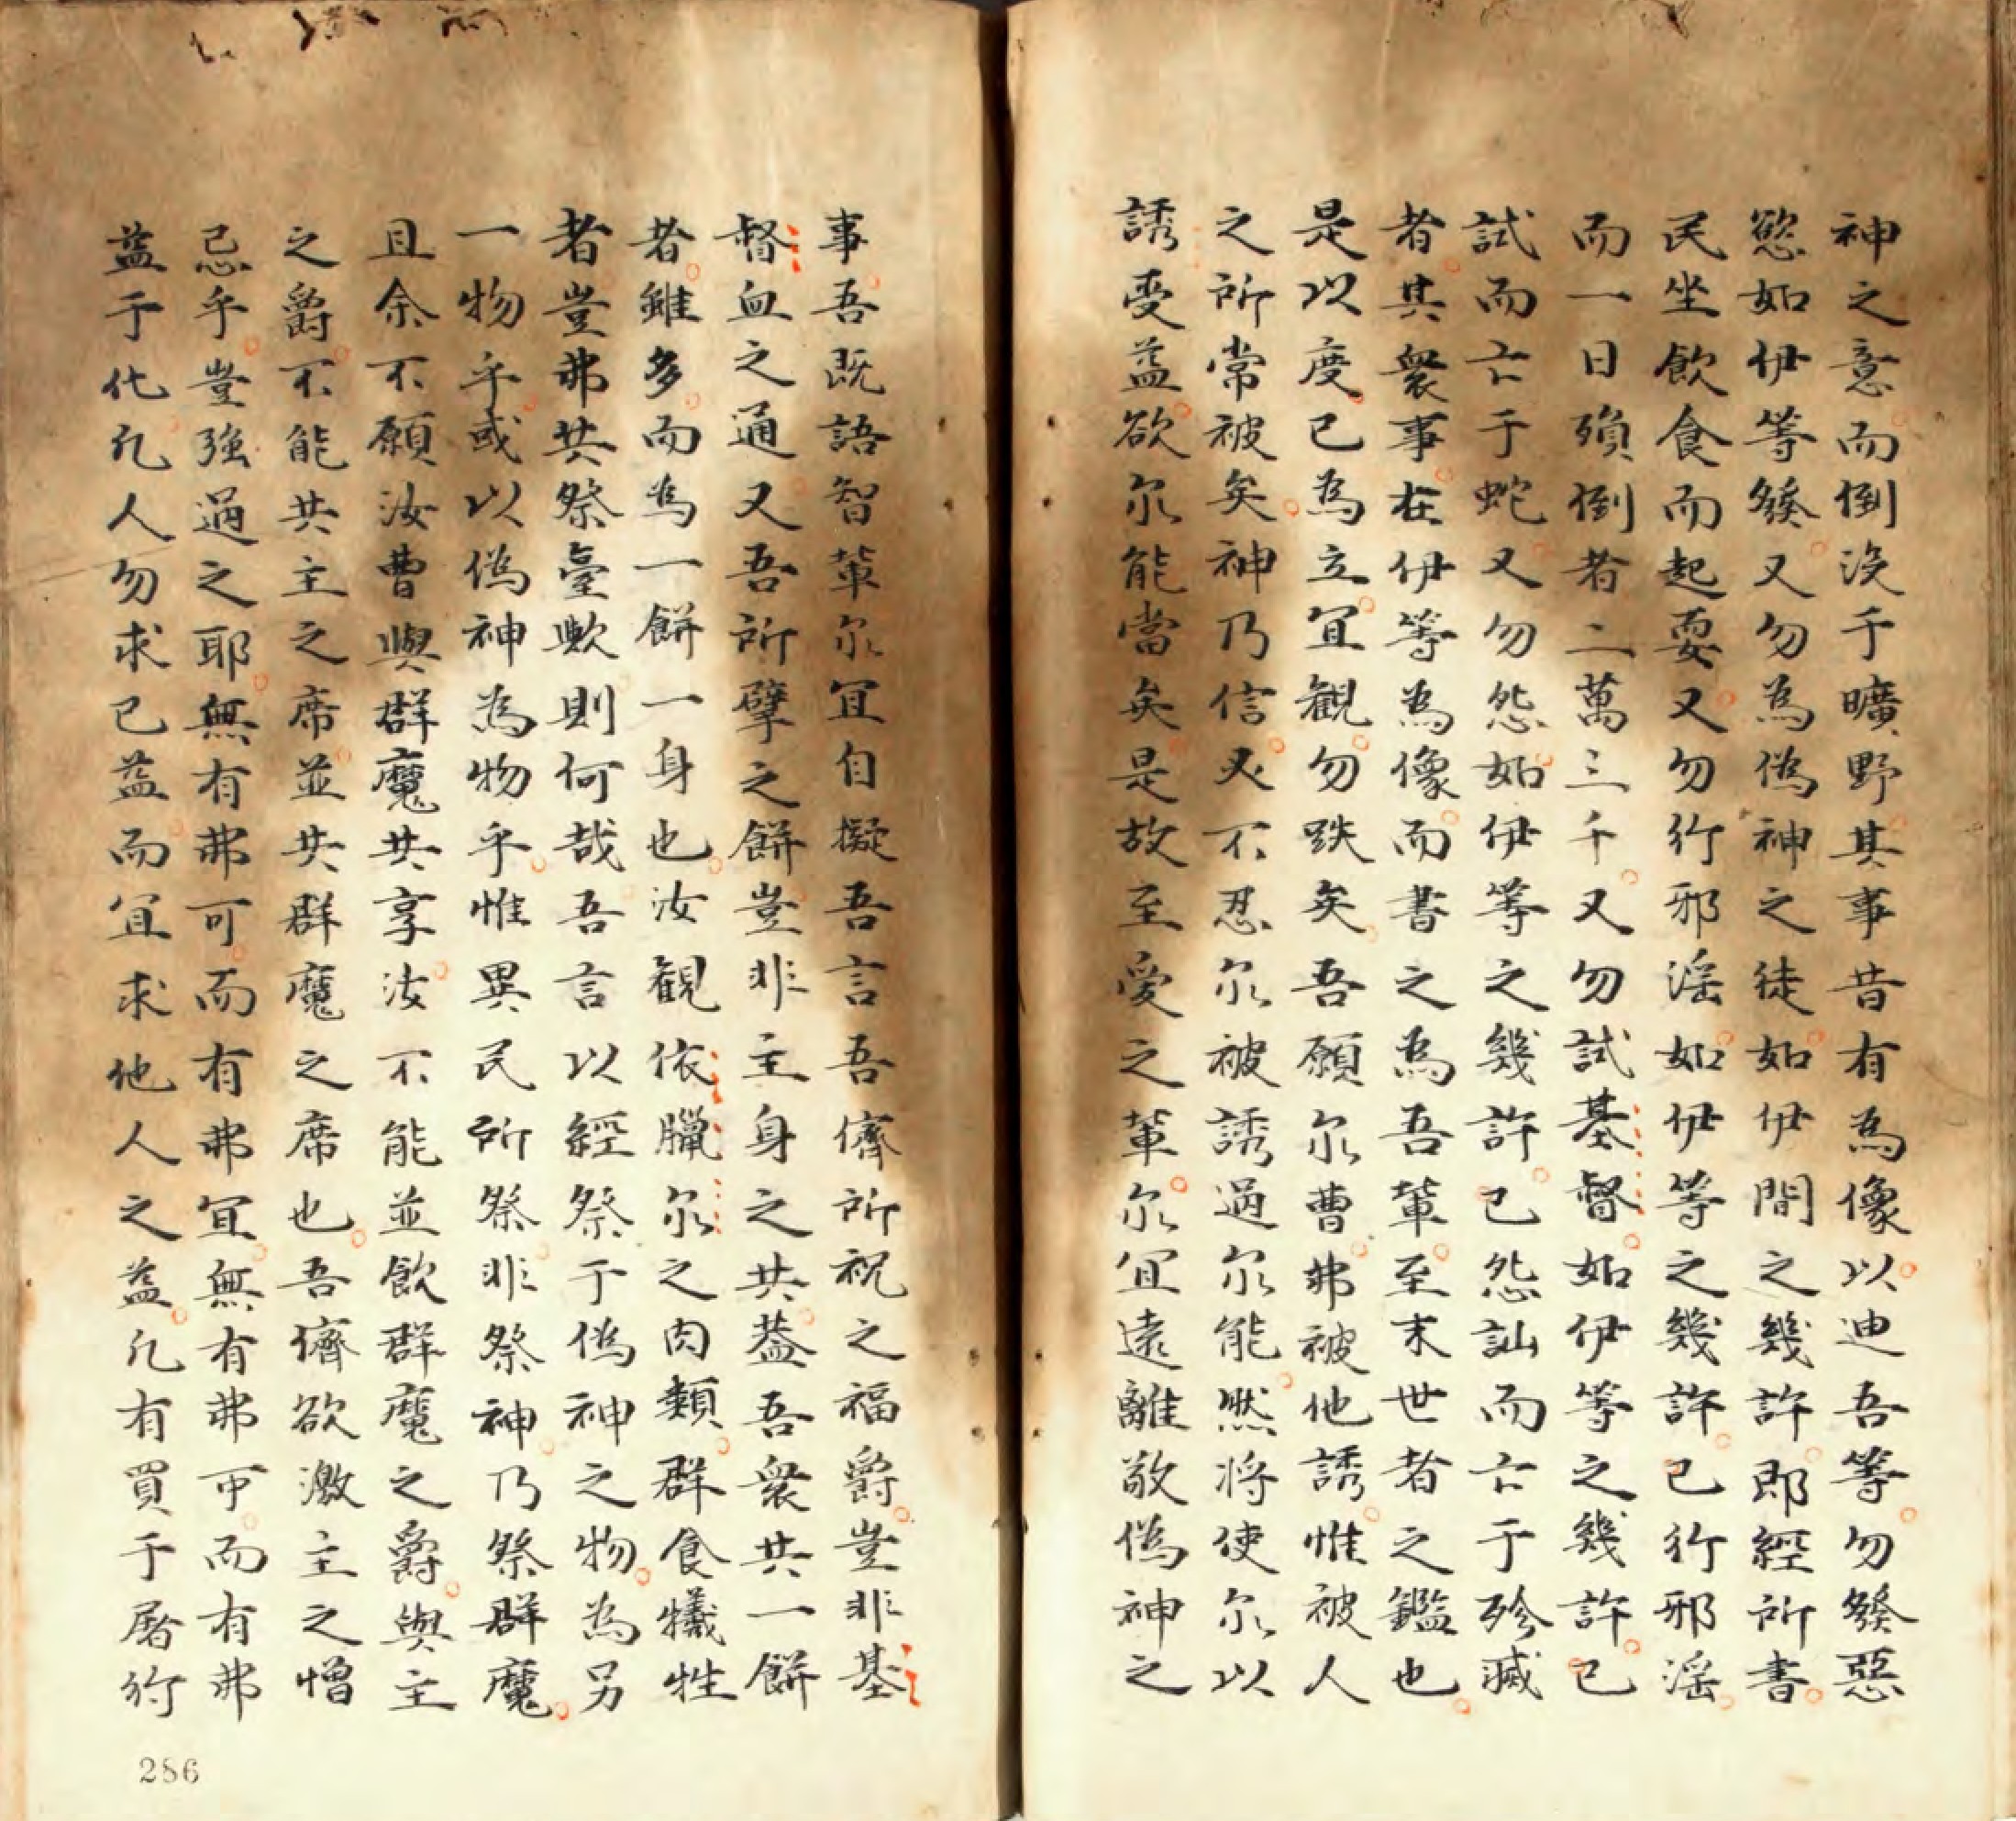 神之意而倒没于曠野其事昔有為像以迪吾等勿發惡
慾如伊等發又勿為偽神之徒如伊間之幾許即經所書
民坐飲食而起耍又勿行邪淫如伊等之幾許已行邪淫
而一日殞倒者二萬三千又勿試基督如伊等之幾許已
試而亡于蛇又勿怨如伊等之幾許已怨訕而亡于殄滅
者其衆事在伊等為像而書之為吾輩至末世者之鑑也
是以度已為立宜観勿跌矣吾願尔曹弗被他誘惟被人
之所常被矣神乃信又不忍尔被誘過尔能然将使尔以
誘受益欲尔能當矣是故至愛之輩尔宜遠離敬偽神之
事吾既語智輩尔宜自擬吾言吾儕所祝之福爵豈非基
督血之通又吾所擘之餅豈非主身之共蓋吾衆共一餅
者雖多而為一餅一身也汝観依臘尔之肉類群食犧牲
者豈弗共祭臺歟則何哉吾言以經祭于偽神之物為另
一物乎或以偽神為物乎惟異民所祭非祭神乃祭群魔
且余不願汝曹與群魔共享汝不能並飲群魔之爵與主
之爵不能共主之席並共群魔之席也吾儕欲激主之憎
忌乎豈強過之耶無有弗可而有弗宜無有弗可而有弗
益于化凡人勿求已益而宜求他人之益凡有買于屠行
286